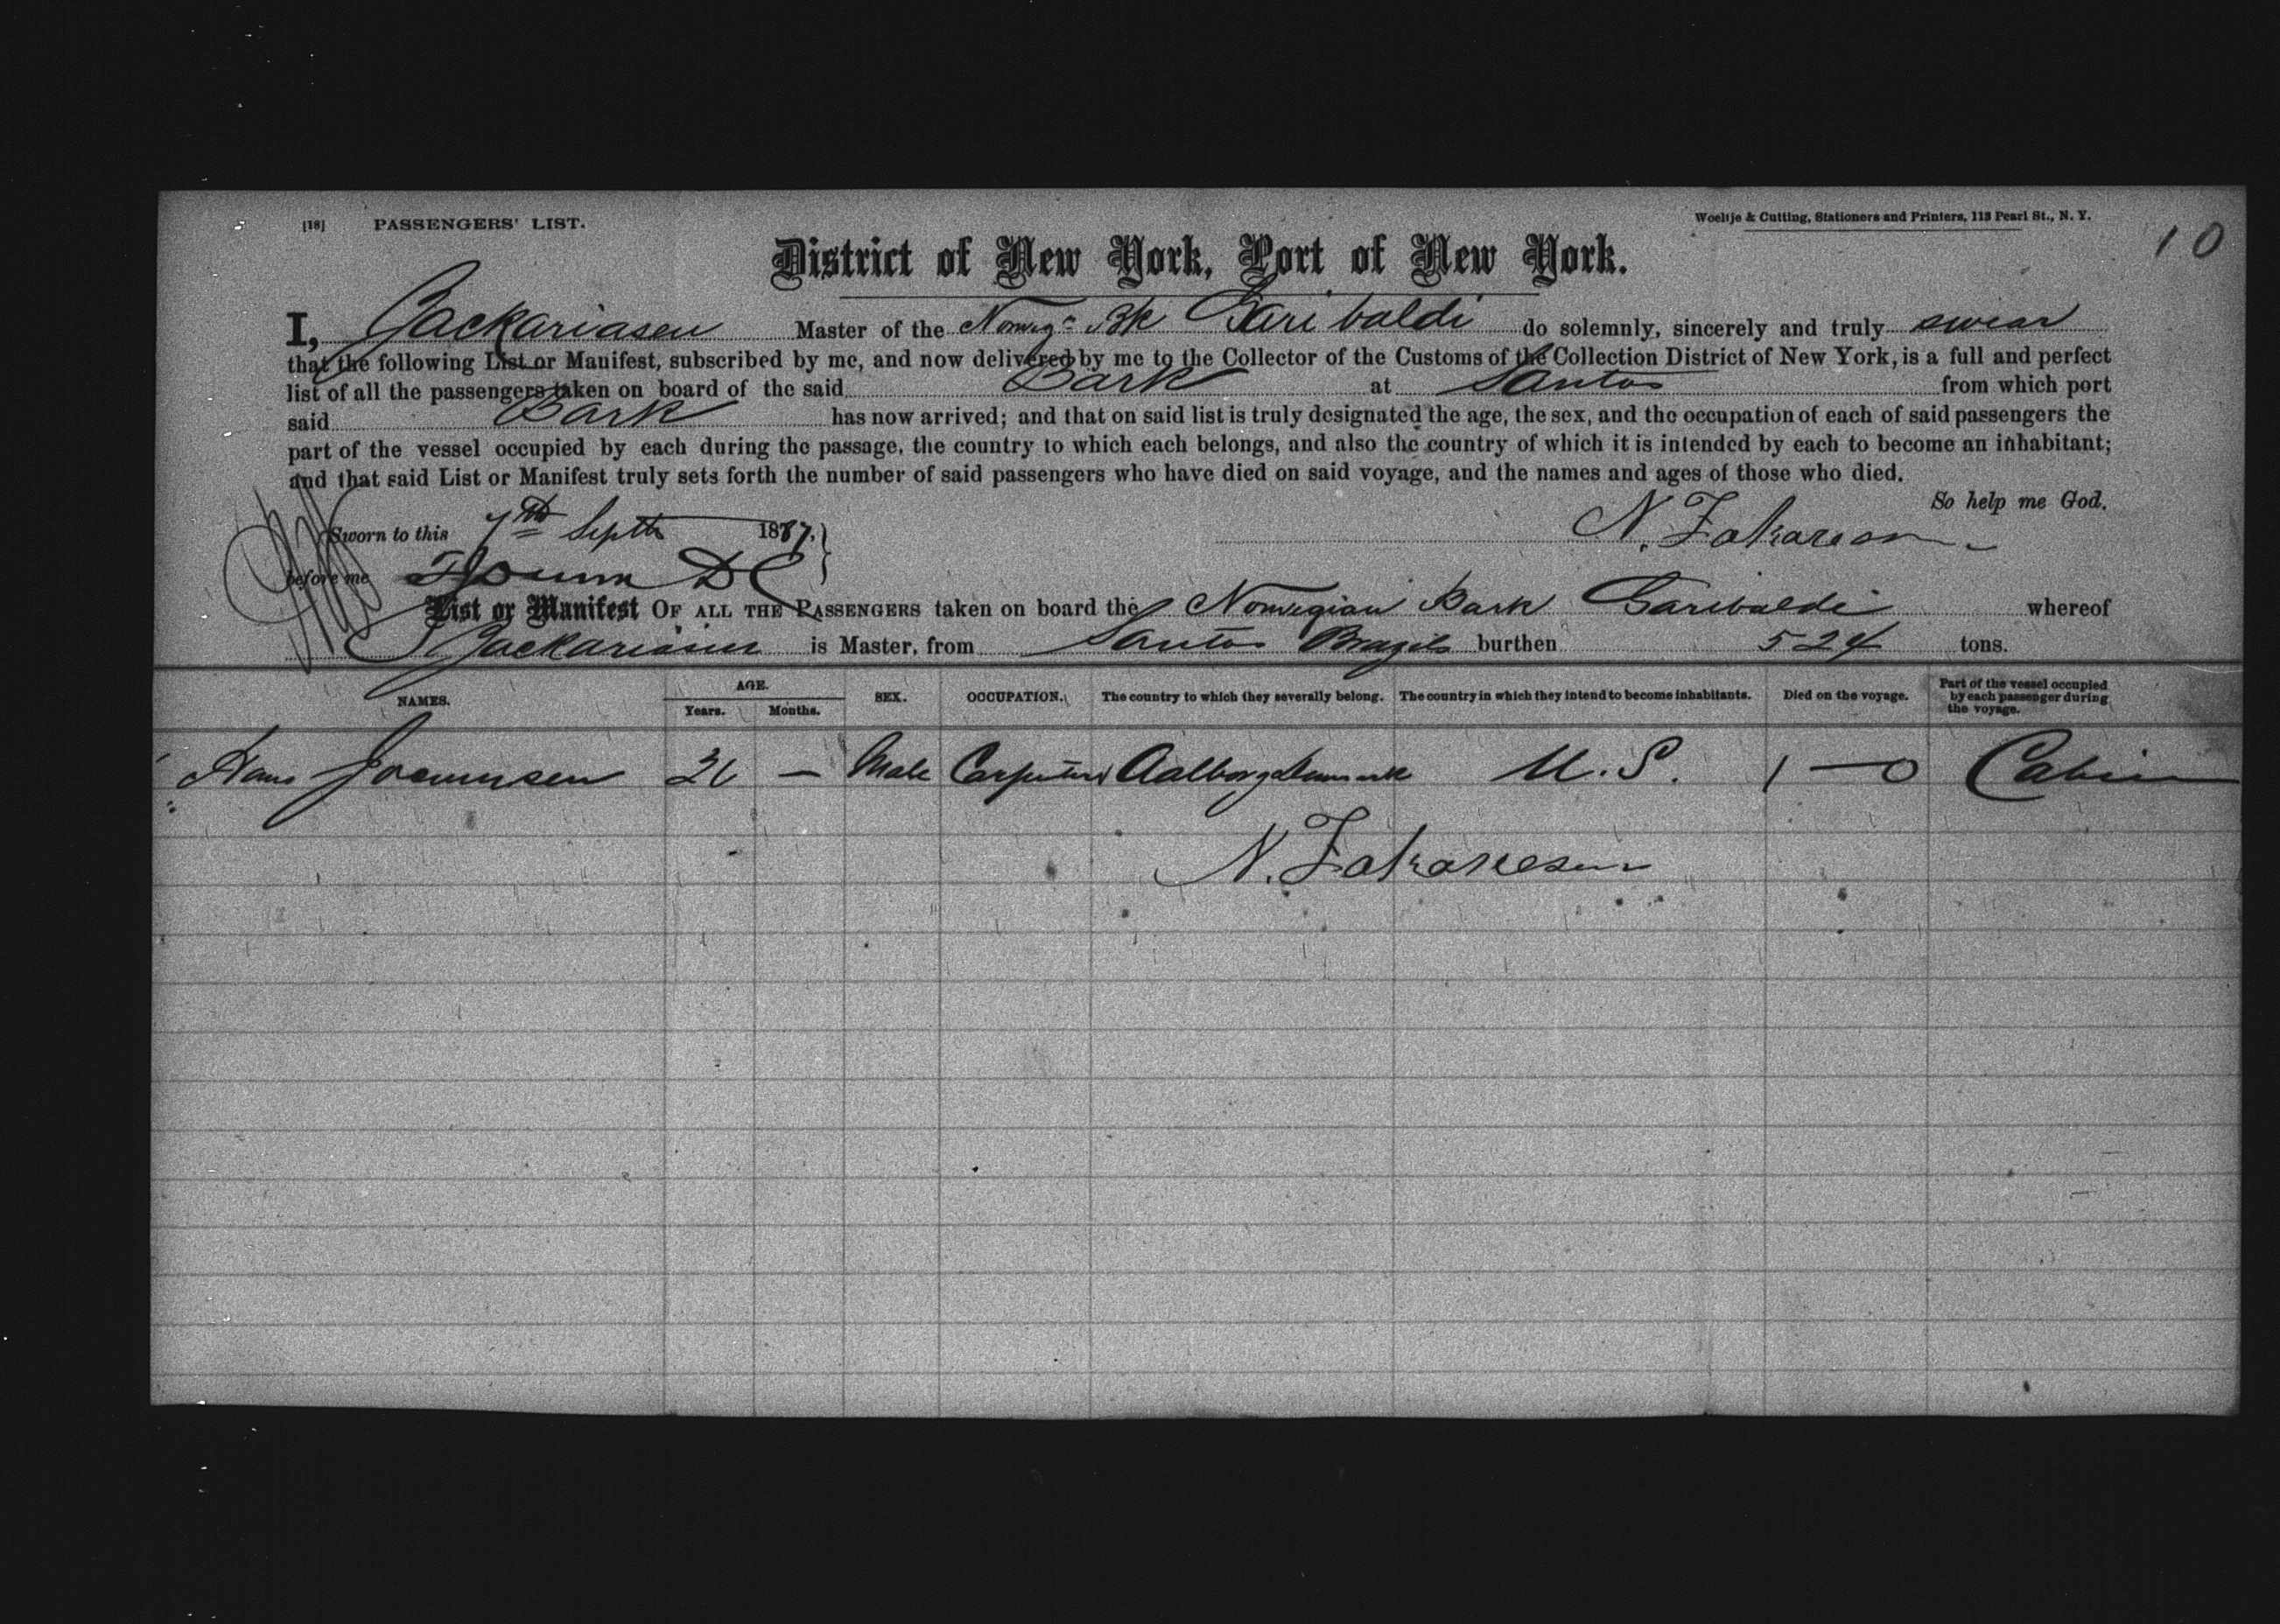 [18] PASSENGERS' LIST.
Woeltje & Cutting, Stationers and Printers, 113 Pearl St., N. Y.
10
District of New York, Port of New York.
I, Zackariasen Master of the Norwgn Bk Garibaldi do solemnly, sincerely and truly swear
that the following List or Manifest, subscribed by me, and now delivered by me to the Collector of the Customs of the Collection District of New York, is a full and perfect
list of all the passengers taken on board of the said Bark at Santos from which port
said Bark has now arrived; and that on said list is truly designated the age, the sex, and the occupation of each of said passengers the
part of the vessel occupied by each during the passage, the country to which each belongs, and also the country of which it is intended by each to become an inhabitant;
and that said List or Manifest truly sets forth the number of said passengers who have died on said voyage, and the names and ages of those who died.
So help me God.
Sworn to this 7th Septb 1887,
N. Zakarson
before me
List or Manifest OF ALL THE PASSENGERS taken on board the Norwegian Bark Garibaldi whereof
Zackariasen is Master, from Santos Brazils burthen 524 tons.
NAMES. AGE. Years. Months. SEX. OCCUPATION. The country to which they severally belong. The country in which they intend to become inhabitants. Died on the voyage. Part of the vessel occupied by each passenger during the voyage.
Hans — Male Carpenter Aalborg Denmark U. S. 1—0 Cabin
N. Zakariesen